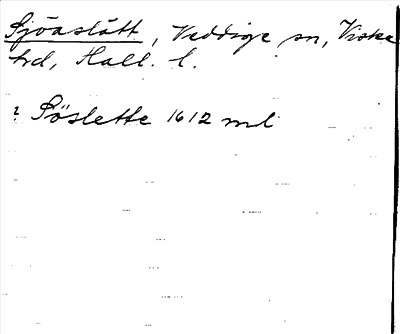 Sjöaslätt, Veddige sn, Viske
hd, Hall. l.
? Söslette 1612 ml